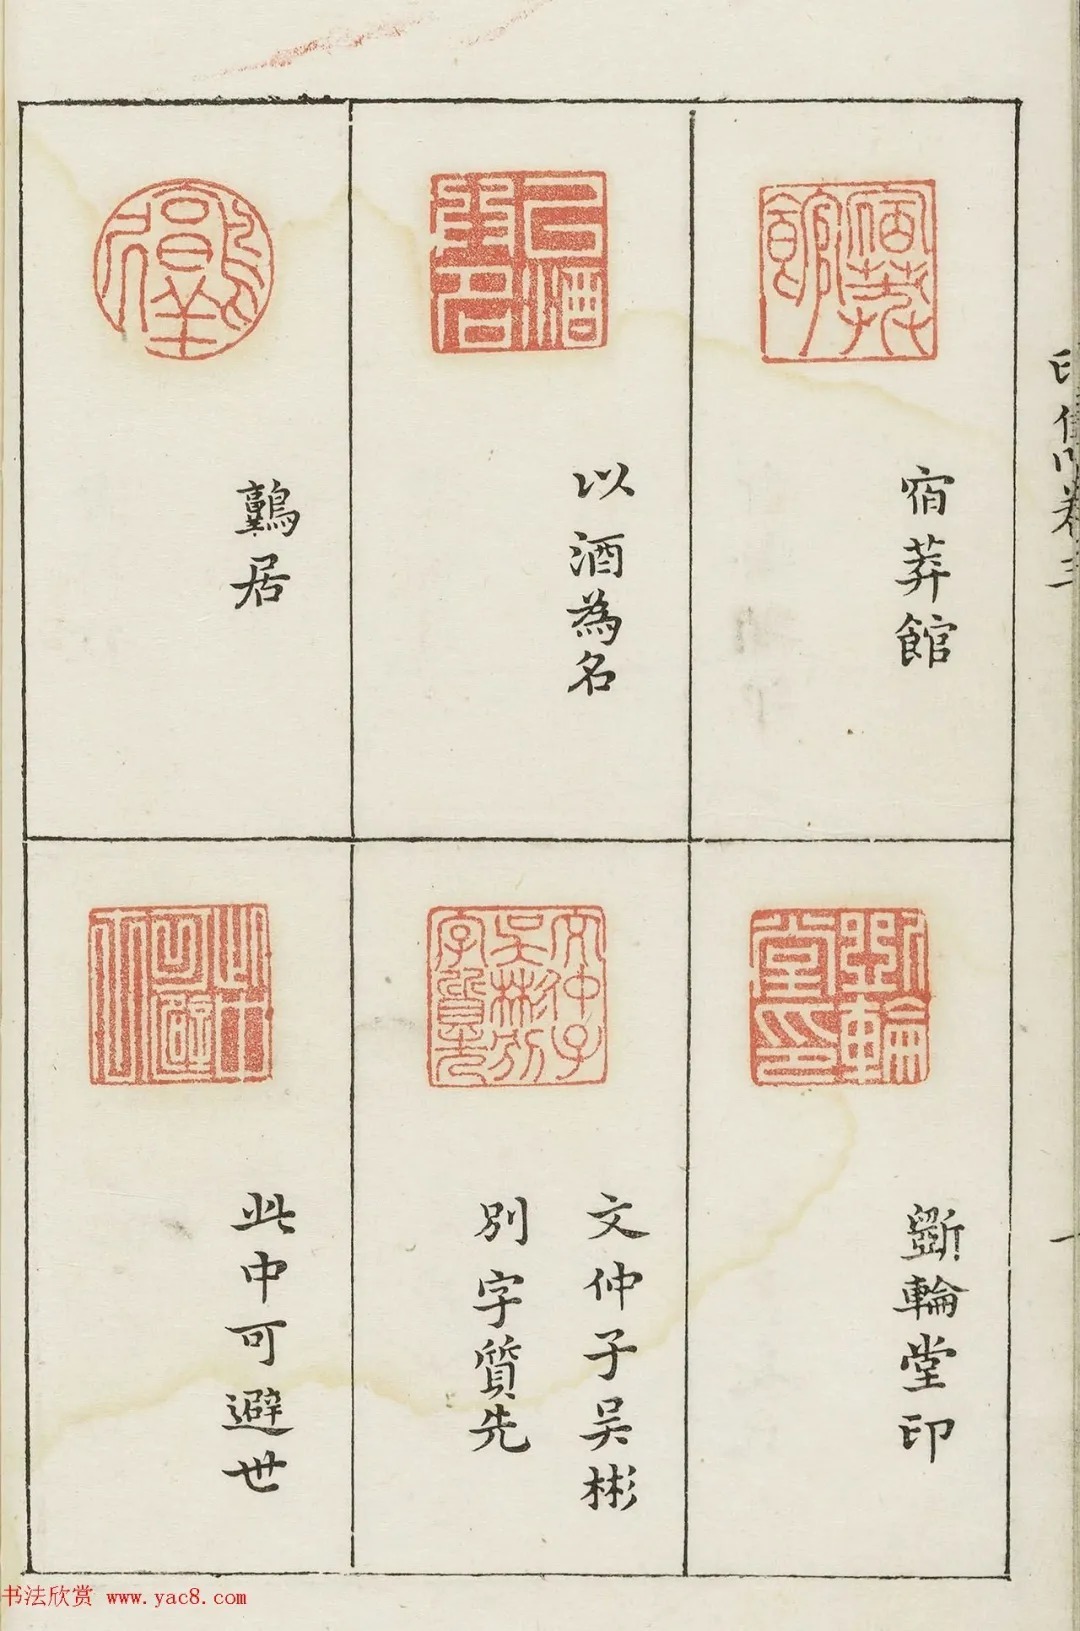 宿莽館
以酒為名
鶉居
斲輪堂印
文仲子吳彬
別字質先
此中可避世
卷三
一
书法欣赏 www.yac8.com